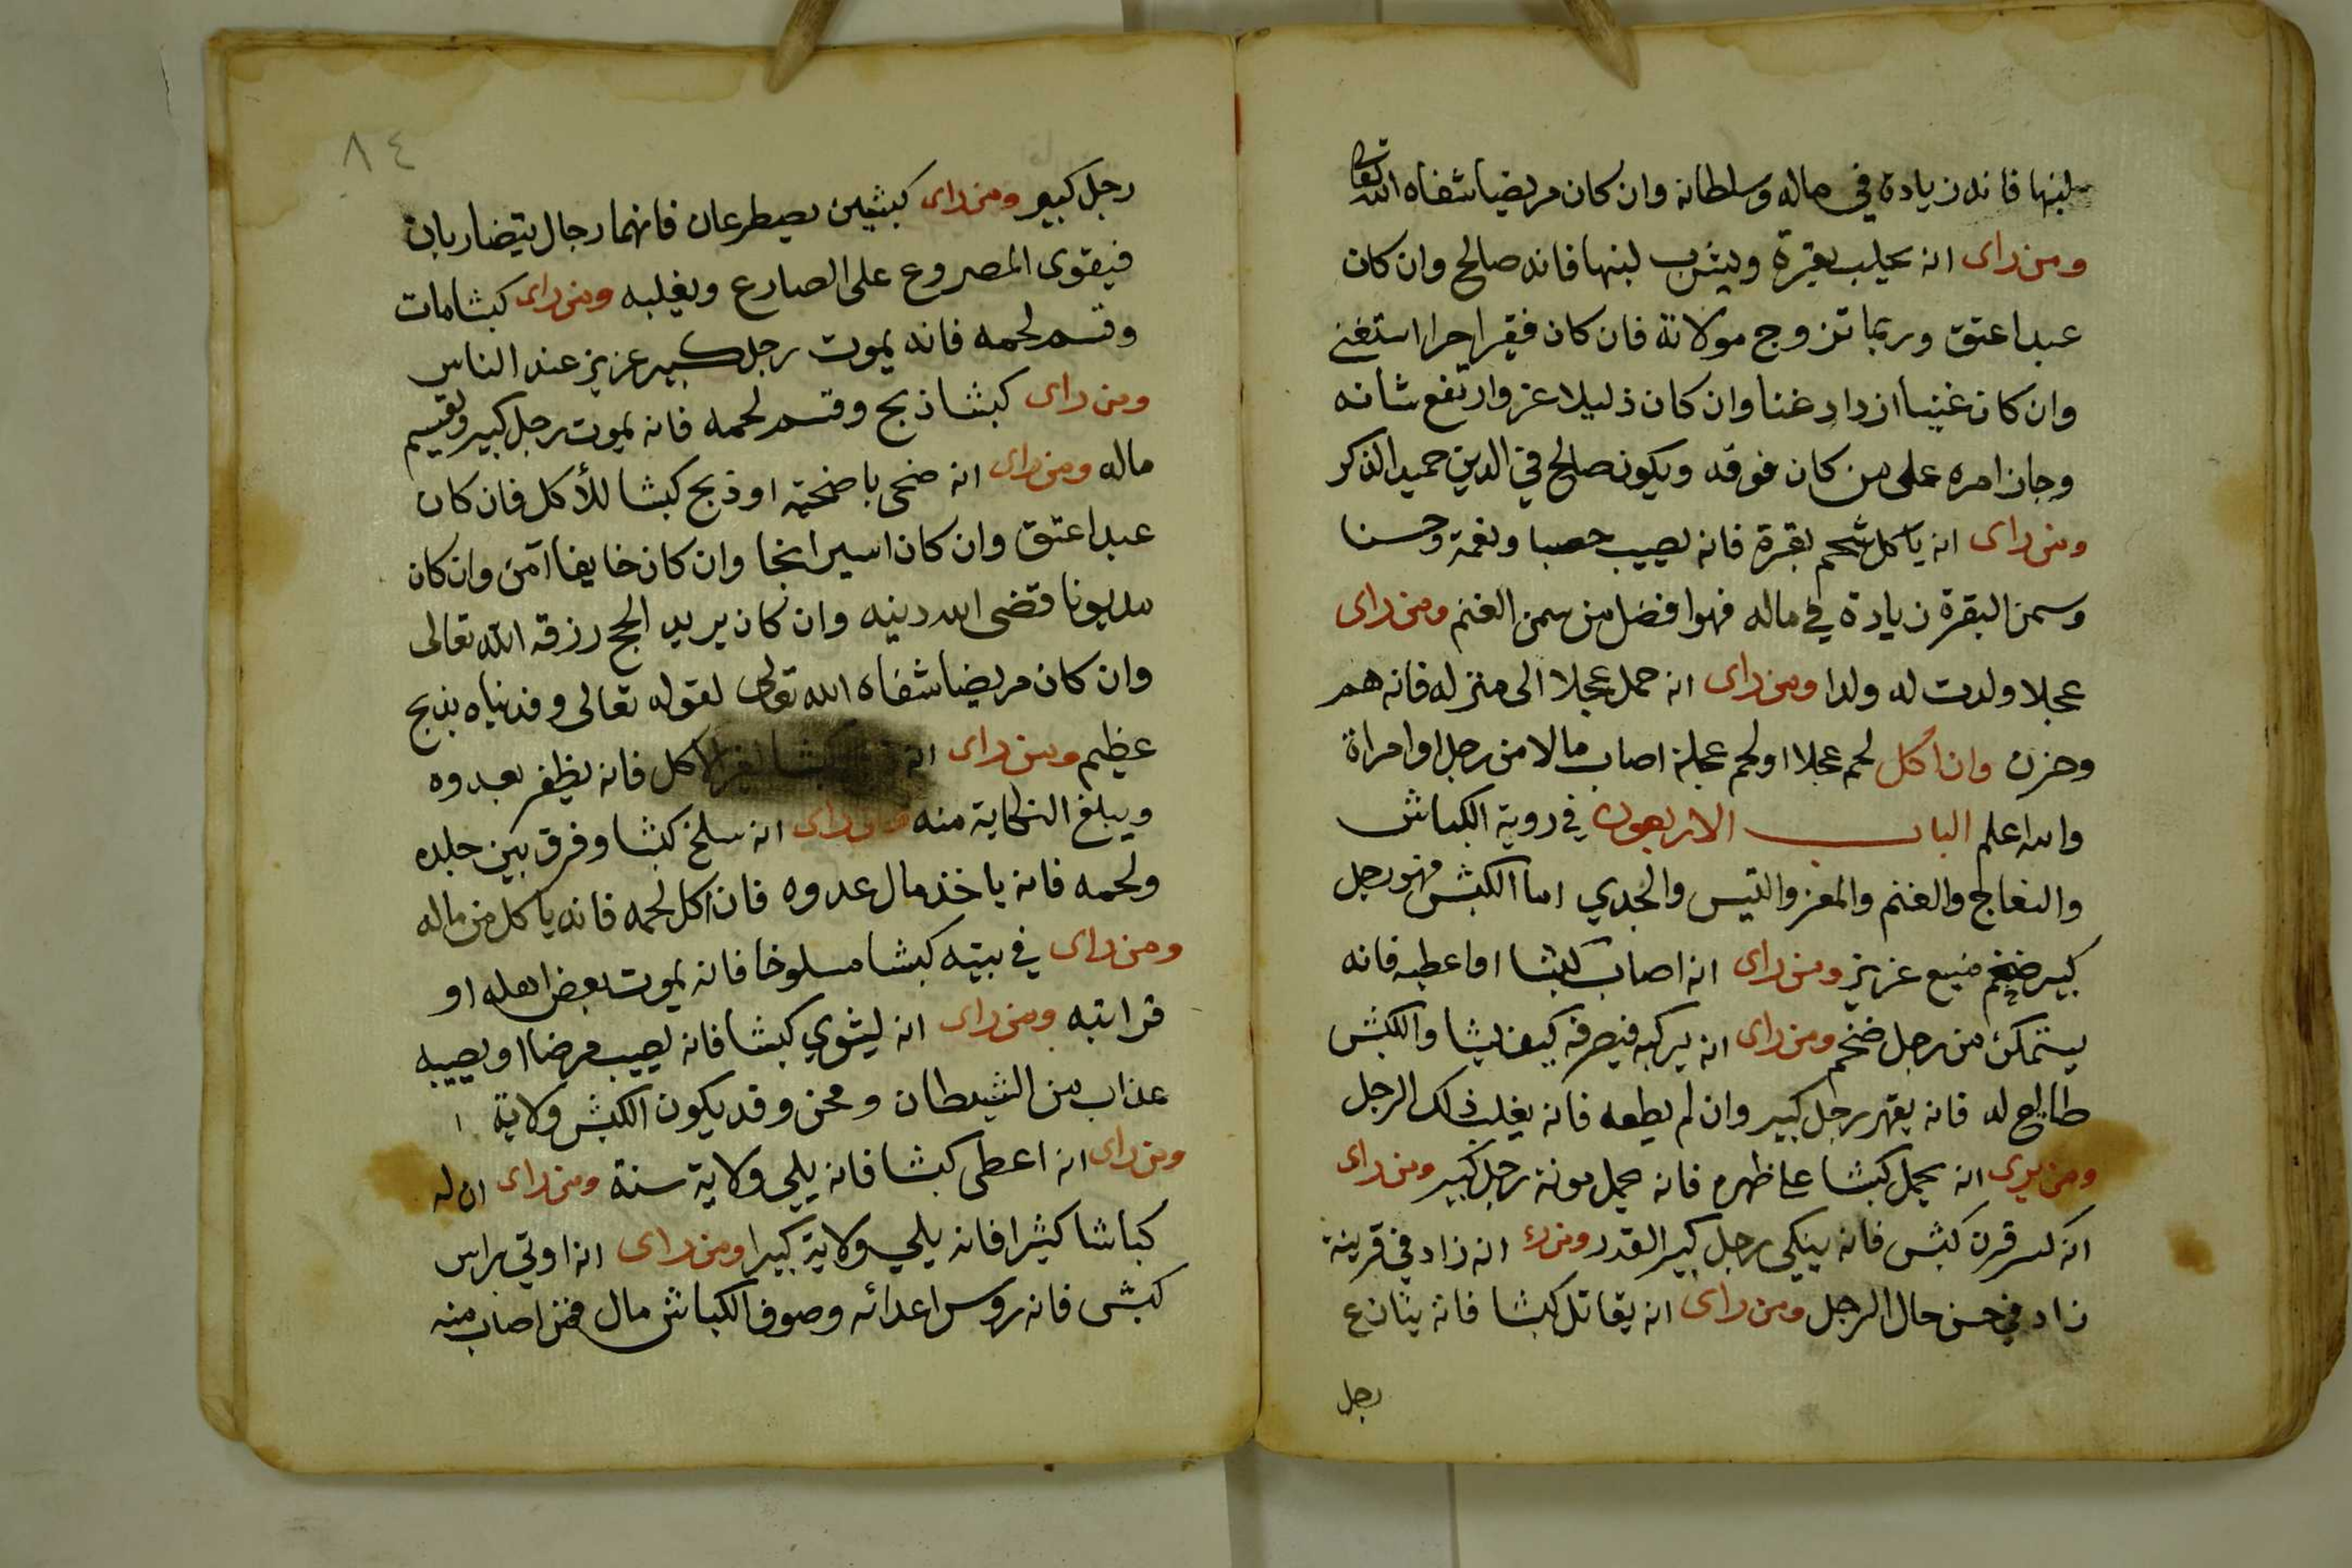 لبنها فانه زيادة في ماله وسلطانه وان كان مريضا شفاه الله تعالى
ومن راى انه يحلب بقرة ويشرب لبنها فانه صالح وان كان
عبدا عتق وربما تزوج مولاته فان كان فقيرا حرا استغنى
وان كان غنيا ازداد غنا وان كان ذليلا عز وارتفع شانه
وجاز امره على من كان فوقه ويكون صالح في الدين حميد الذكر
ومن راى انه ياكل شحم بقرة فانه يصيب خصبا ونعمة وحسنا
وسمن البقرة زيادة في ماله فهو افضل من سمن الغنم ومن راى
عجلا ولدت له ولدا ومن راى انه حمل عجلا الى منزله فانه هم
وحزن وان اكل لحم عجلا او لحم عجلة اصاب مالا من رجل او امراة
والله اعلم الباب الاربعون في روية الكباش
والنعاج والغنم والمعز والتيس والجدي اما الكبش فهو رجل
كبير ضخم منيع عزيز ومن راى انه اصاب كبشا او اعطيه فانه
يستمكن من رجل ضخم ومن راى انه يركبه فيصرفه كيف يشا والكبش
طايع له فانه يقهر رجل كبير وان لم يطعه فانه يغلب ذلك الرجل
ومن يرى انه يحمل كبشا على ظهره فانه يحمل مونة رجل كبير ومن راى
انه كسر قرن كبش فانه ينكي رجل كبير القدر ومن راى انه زاد في قرينة
زاد في حسن حال الرجل ومن راى انه يقاتل كبشا فانه ينازع
رجل
٨٤
رجل كبير ومن راى كبشين يصطرعان فانهما رجال يتضاربان
فيقوى المصروع على الصارع ويغلبه ومن راى كبشا مات
وقسم لحمه فانه يموت رجل كبير عزيز عند الناس
ومن راى كبشا ذبح وقسم لحمه فانه يموت رجل كبير ويقسم
ماله ومن راى انه ضحى باضحية او ذبح كبشا للأكل فان كان
عبدا عتق وان كان اسيرا نجا وان كان خايفا آمن وان كان
مديونا قضى الله دينه وان كان يريد الحج رزقه الله تعالى
وان كان مريضا شفاه الله تعالى لقوله تعالى وفديناه بذبح
عظيم ومن راى انه كبشا لغير الاكل فانه يظفر بعدوه
ويبلغ النكاية منه ومن راى انه سلخ كبشا وفرق بين جلده
ولحمه فانه ياخذ مال عدوه فان اكل لحمه فانه ياكل من ماله
ومن راى في بيته كبشا مسلوخا فانه يموت بعض اهله او
قرابته ومن راى انه ليشوي كبشا فانه يصيب مرضا او يصيبه
عذاب من الشيطان ومحن وقد يكون الكبش ولاية
ومن راى انه اعطى كبشا فانه يلي ولاية سنة ومن راى ان له
كباشا كثيرا فانه يلي ولاية كبيرا ومن راى انه اوتي براس
كبش فانه روس اعدائه وصوف الكباش مال فمن اصاب منه